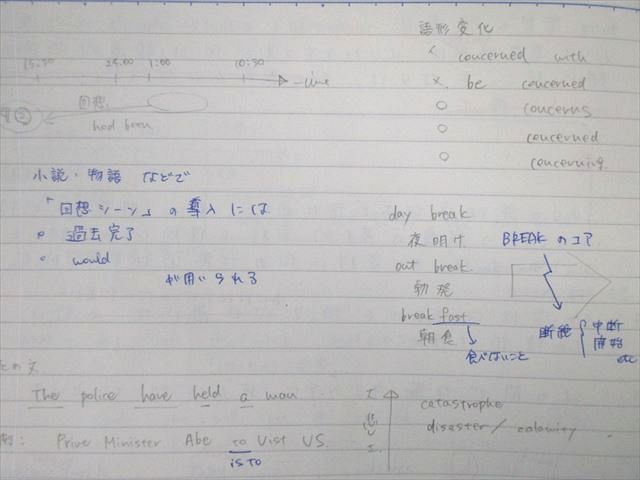 語形変化
× concerned with
× be concerned
○ concerns
○ concerned
○ concerning
24:00 1:00 10:30
time
回想
②
had been
小説・物語 などで
「回想シーン」の導入には
・過去完了
・would
が用いられる
day break
夜明け
out break
勃発
break fast
朝食
食べないこと
BREAK のコア
断絶
中断
開始
etc
The police have held a man
Prive Minister Abe to Vist US
is to
catastrophe
disaster / calamity